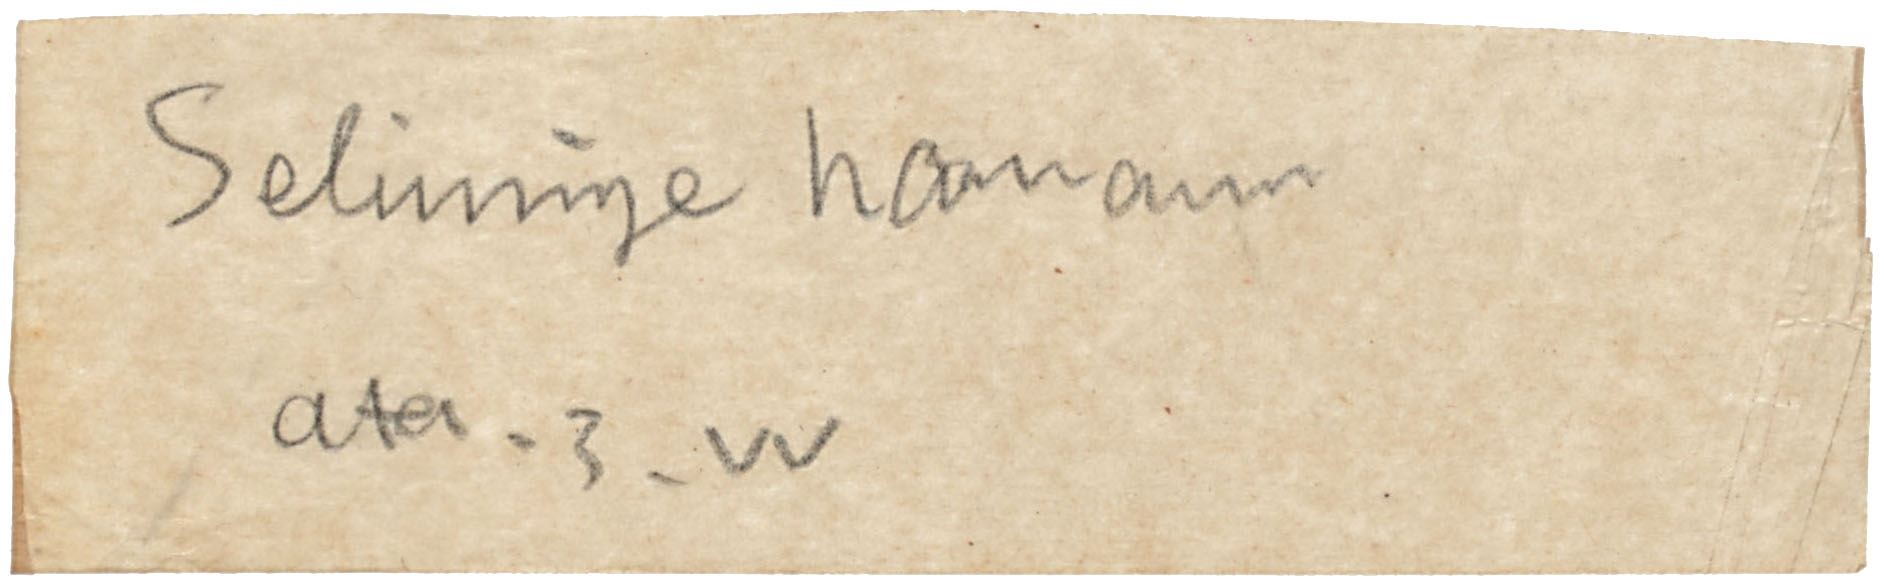 Selimiye hamamı
ata. 3. W